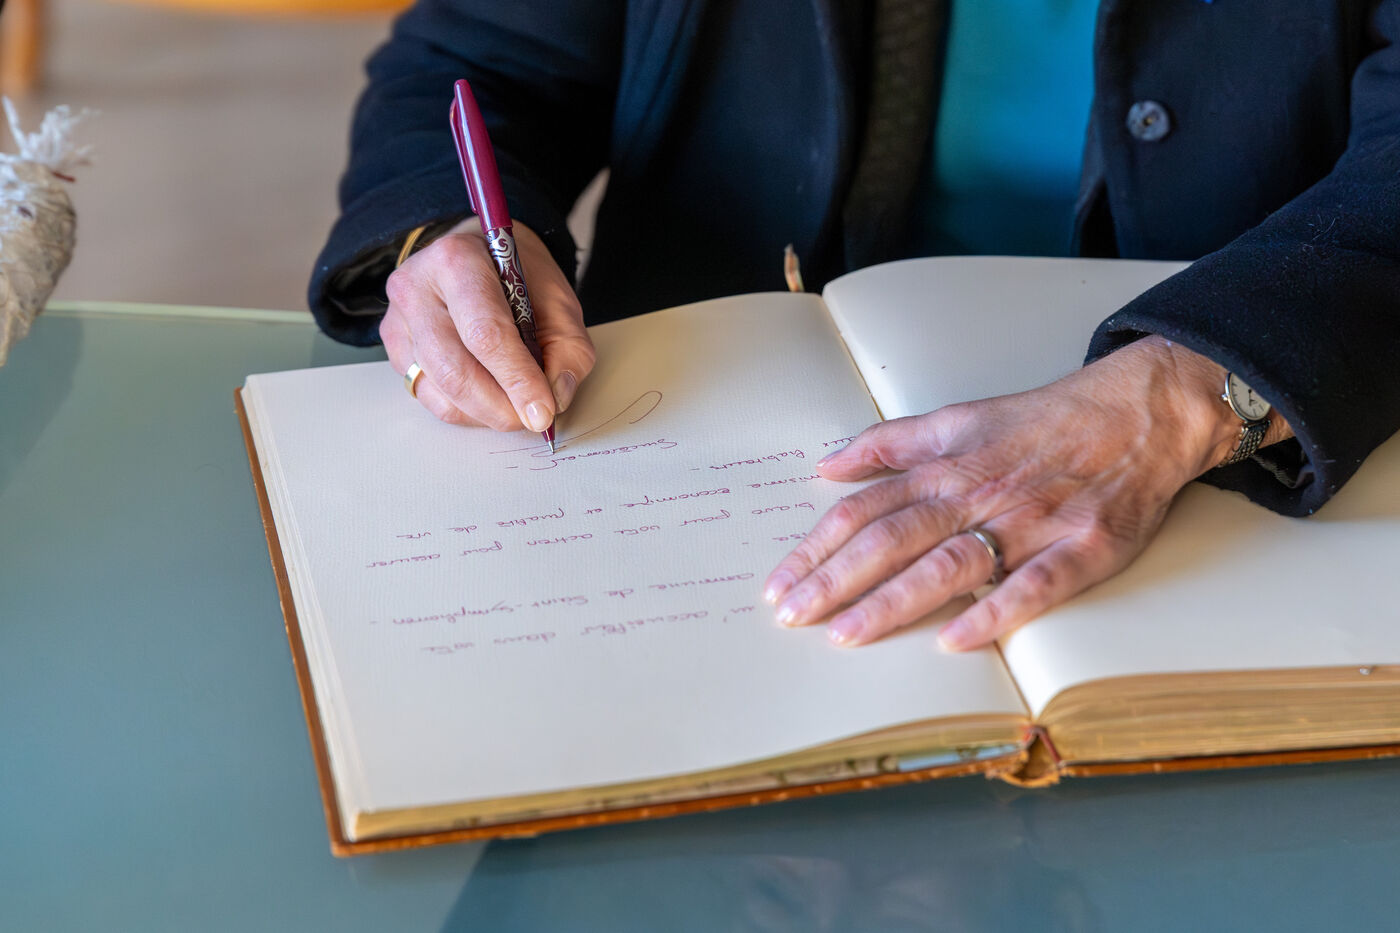 m'accueillir dans votre
commune de Saint-Symphorien -
bravo pour votre action pour assurer
économique et qualité de vie
aux habitants -
Sincèrement